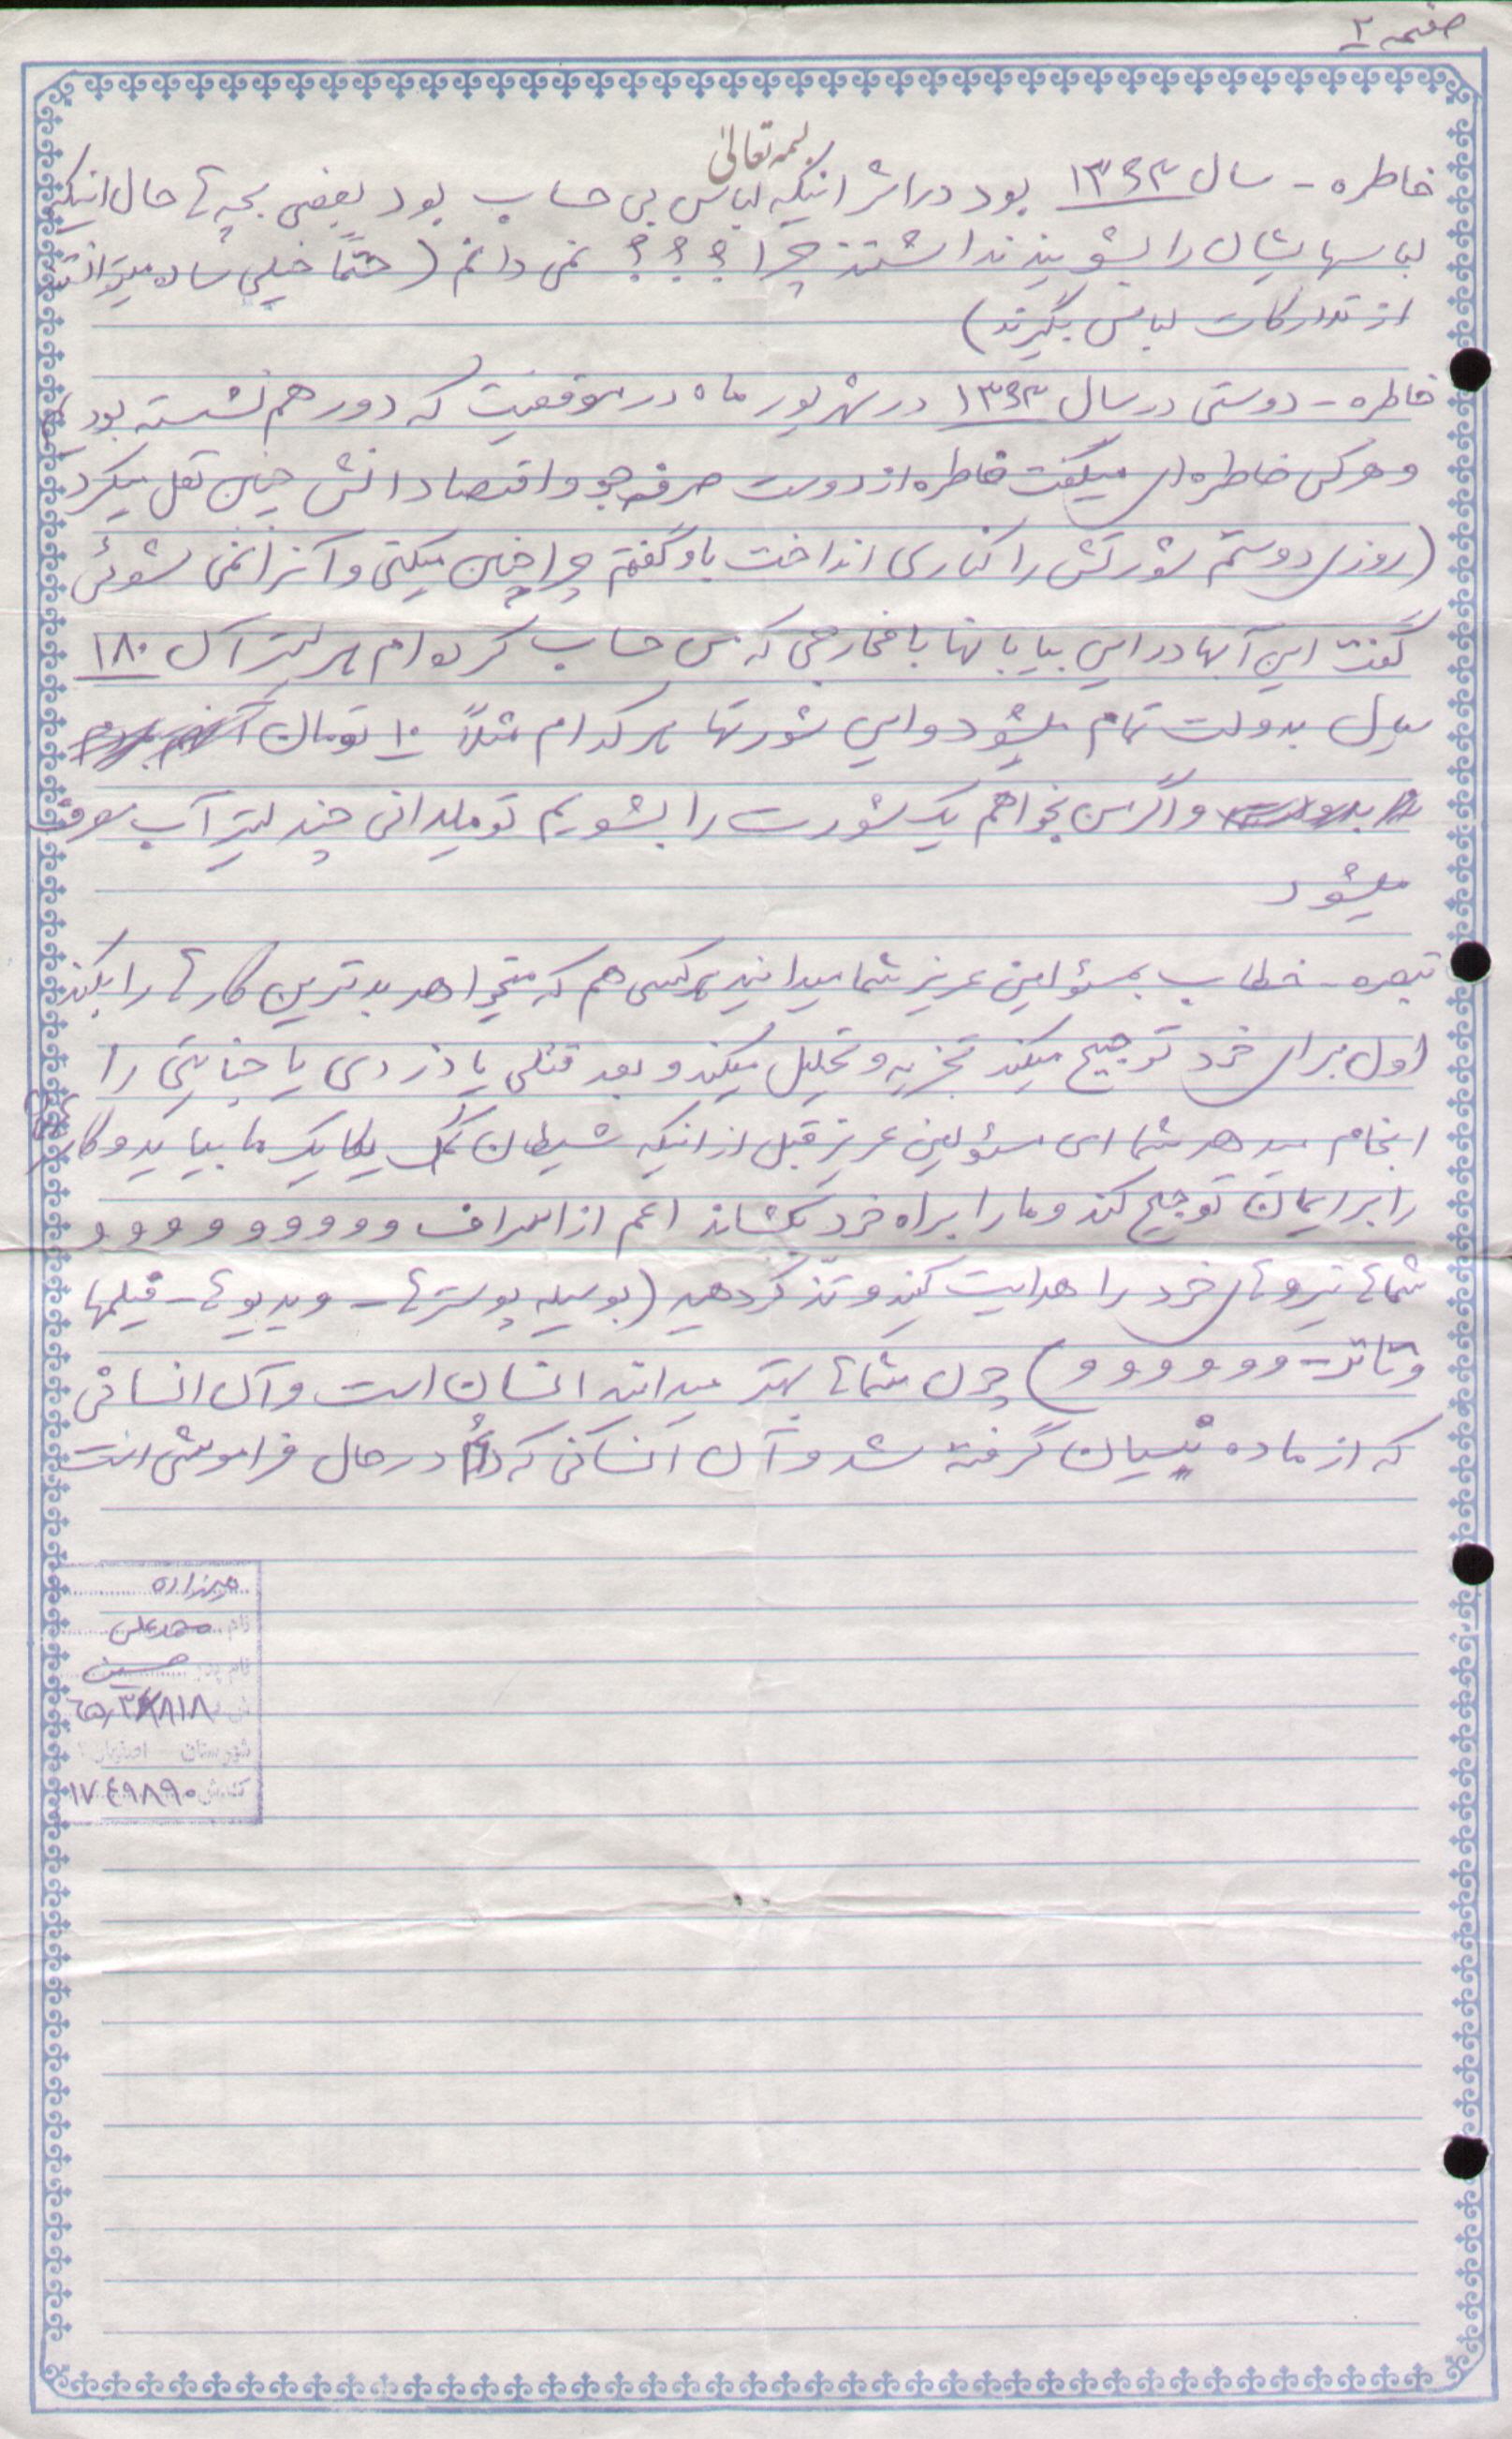 صفحه ۲
بسمه تعالیٰ
خاطره - سال ۱۳۶۳ بود در اثر اینکه لباس بی حساب بود بعضی بچه ها حال اینکه
لباسهایشان را بشویند نداشتند چرا ؟ ؟ ؟ نمی دانم ( حتماً خیلی ساده میتوانستند
از تدارکات لباس بگیرند )
خاطره - دوستی در سال ۱۳۶۳ در شهریور ماه در موقعیت که دور هم نشسته بودیم
و هر کس خاطره ای میگفت خاطره از دوست صرفه جو و اقتصاد دانش چنین نقل میکرد
( روزی دوستم شورتش را کناری انداخت باو گفتم چرا چنین میکنی و آنرا نمی شوئی
گفت این آبها در این بیابانها با مخارجی که من حساب کرده ام هر لیتر آن ۱۸۰
ریال بدولت تمام میشود و این شورتها هر کدام مثلاً ۱۰ تومان
و اگر من بخواهم یک شورت را بشویم تو میدانی چند لیتر آب مصرف
میشود
تبصره - خطاب بمسئولین عزیز شما میدانید هر کسی هم که میخواهد بدترین کارها را بکند
اول برای خود توجیح میکند تجزیه و تحلیل میکند و بعد قتلی یا دزدی یا جنایتی را
انجام میدهد شما ای مسئولین عزیز قبل از اینکه شیطان تک یکایک ما بیاید و کار
را برایمان توجیح کند و ما را براه خود بکشاند اعم از اسراف و و و و و و و و و
شماها نیروهای خود را هدایت کنید و تذکر دهید ( بوسیله پوسترها - ویدیوها - فیلمها
و تاتر - و و و و و و ) چون شماها بهتر میدانید انسان است و آن انسانی
که از ماده نسیان گرفته شد و آن انسانی که دائم در حال فراموشی است
میرزاده
نام محمدعلی
نام پدر حسین
شهرستان اصفهان
۱۷۴۹۸۹۰